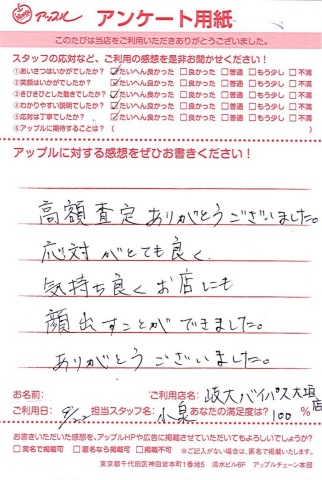 アップル アンケート用紙
このたびは当店をご利用いただきありがとうございました。
スタッフの応対など、ご利用の感想を是非お聞かせください！
①あいさつはいかがでしたか？ ☑たいへん良かった □良かった □普通 □もう少し □不満
②笑顔はいかがでしたか？ ☑たいへん良かった □良かった □普通 □もう少し □不満
③きびきびとした動きでしたか？ ☑たいへん良かった □良かった □普通 □もう少し □不満
④わかりやすい説明でしたか？ ☑たいへん良かった □良かった □普通 □もう少し □不満
⑤応対は丁寧でしたか？ ☑たいへん良かった □良かった □普通 □もう少し □不満
⑥アップルに期待することは？ (
アップルに対する感想をぜひお書きください！
高額査定ありがとうございました。
応対がとても良く
気持ち良くお店にも
顔出すことができました。
ありがとうございました。
お名前: ご利用店名: 岐大バイパス大垣店
ご利用日: 9/22 担当スタッフ名 小泉 あなたの満足度は? 100 %
お書きいただいた感想を、アップルHPや広告に掲載させていただいてもよろしいでしょうか?
□実名で掲載可 □匿名なら掲載可 □掲載不可 ※ご記入がない場合は、匿名で掲載いたします。
東京都千代田区神田岩本町1番地5 清水ビル6F アップルチェーン本部